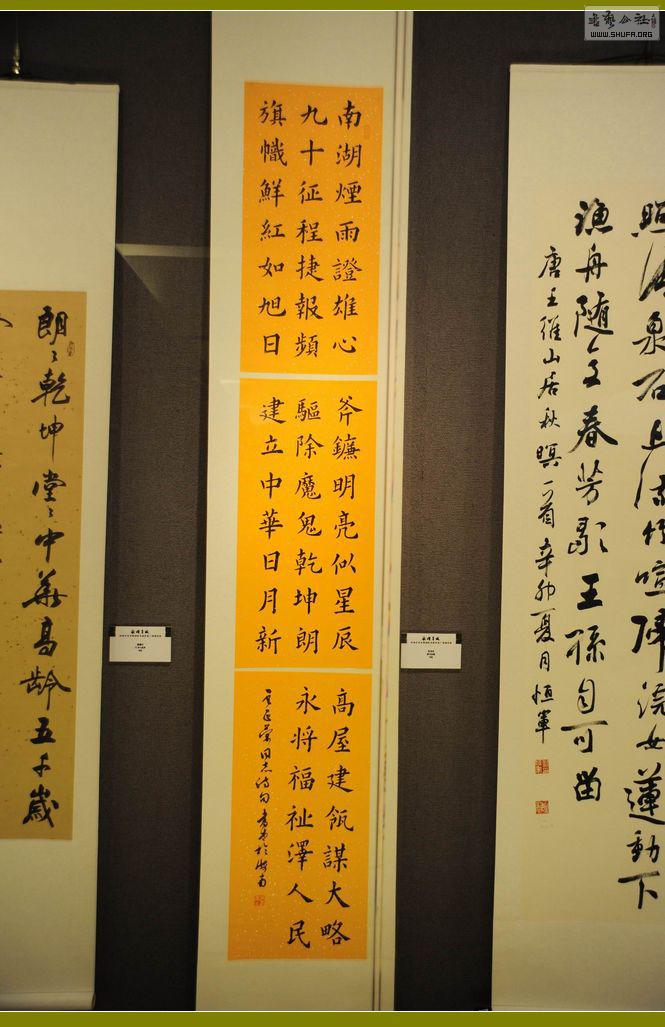 WWW.SHUFA.ORG
南湖煙雨證雄心
九十征程捷報頻
旗幟鮮紅如旭日
斧鐮明亮似星辰
驅除魔鬼乾坤朗
建立中華日月新
高屋建瓴謀大略
永將福祉澤人民
照清泉石上流竹喧歸浣女蓮動下
漁舟随意春芳歇王孫自可留
唐王維山居秋暝一首辛卯夏月恒軍
朗〻乾坤堂〻中華高龄五千歲